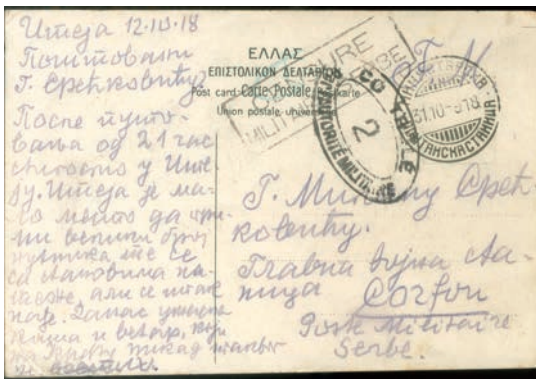 Итеја 12-10-18
Поштовани
Г. Срећковићу
После путо-
вања од 21 час
стигосмо у Ите-
ју. Итеја је ма-
ло место да при-
ми велики број
путника те се
са становима на-
 али се ипак
нађе. Данас
киша и ветар,
на Крфу никад
ΕΛΛΑΣ
ΕΠΙΣΤΟΛΙΚΟΝ ΔΕΛΤΑΡΙΟΝ
Post card-Carte Postale-Postkarte
Union postale universelle
CENSURE
MILITAIRE SERBE
CONTRÔLE
AUTORITÉ MILITAIRE
2
31.10-918
СТАНИЦА
Г. М.
Г. Милану Срећ-
ковићу.
Главна војна ста-
ница Corfou
Poste Militaire
Serbe.